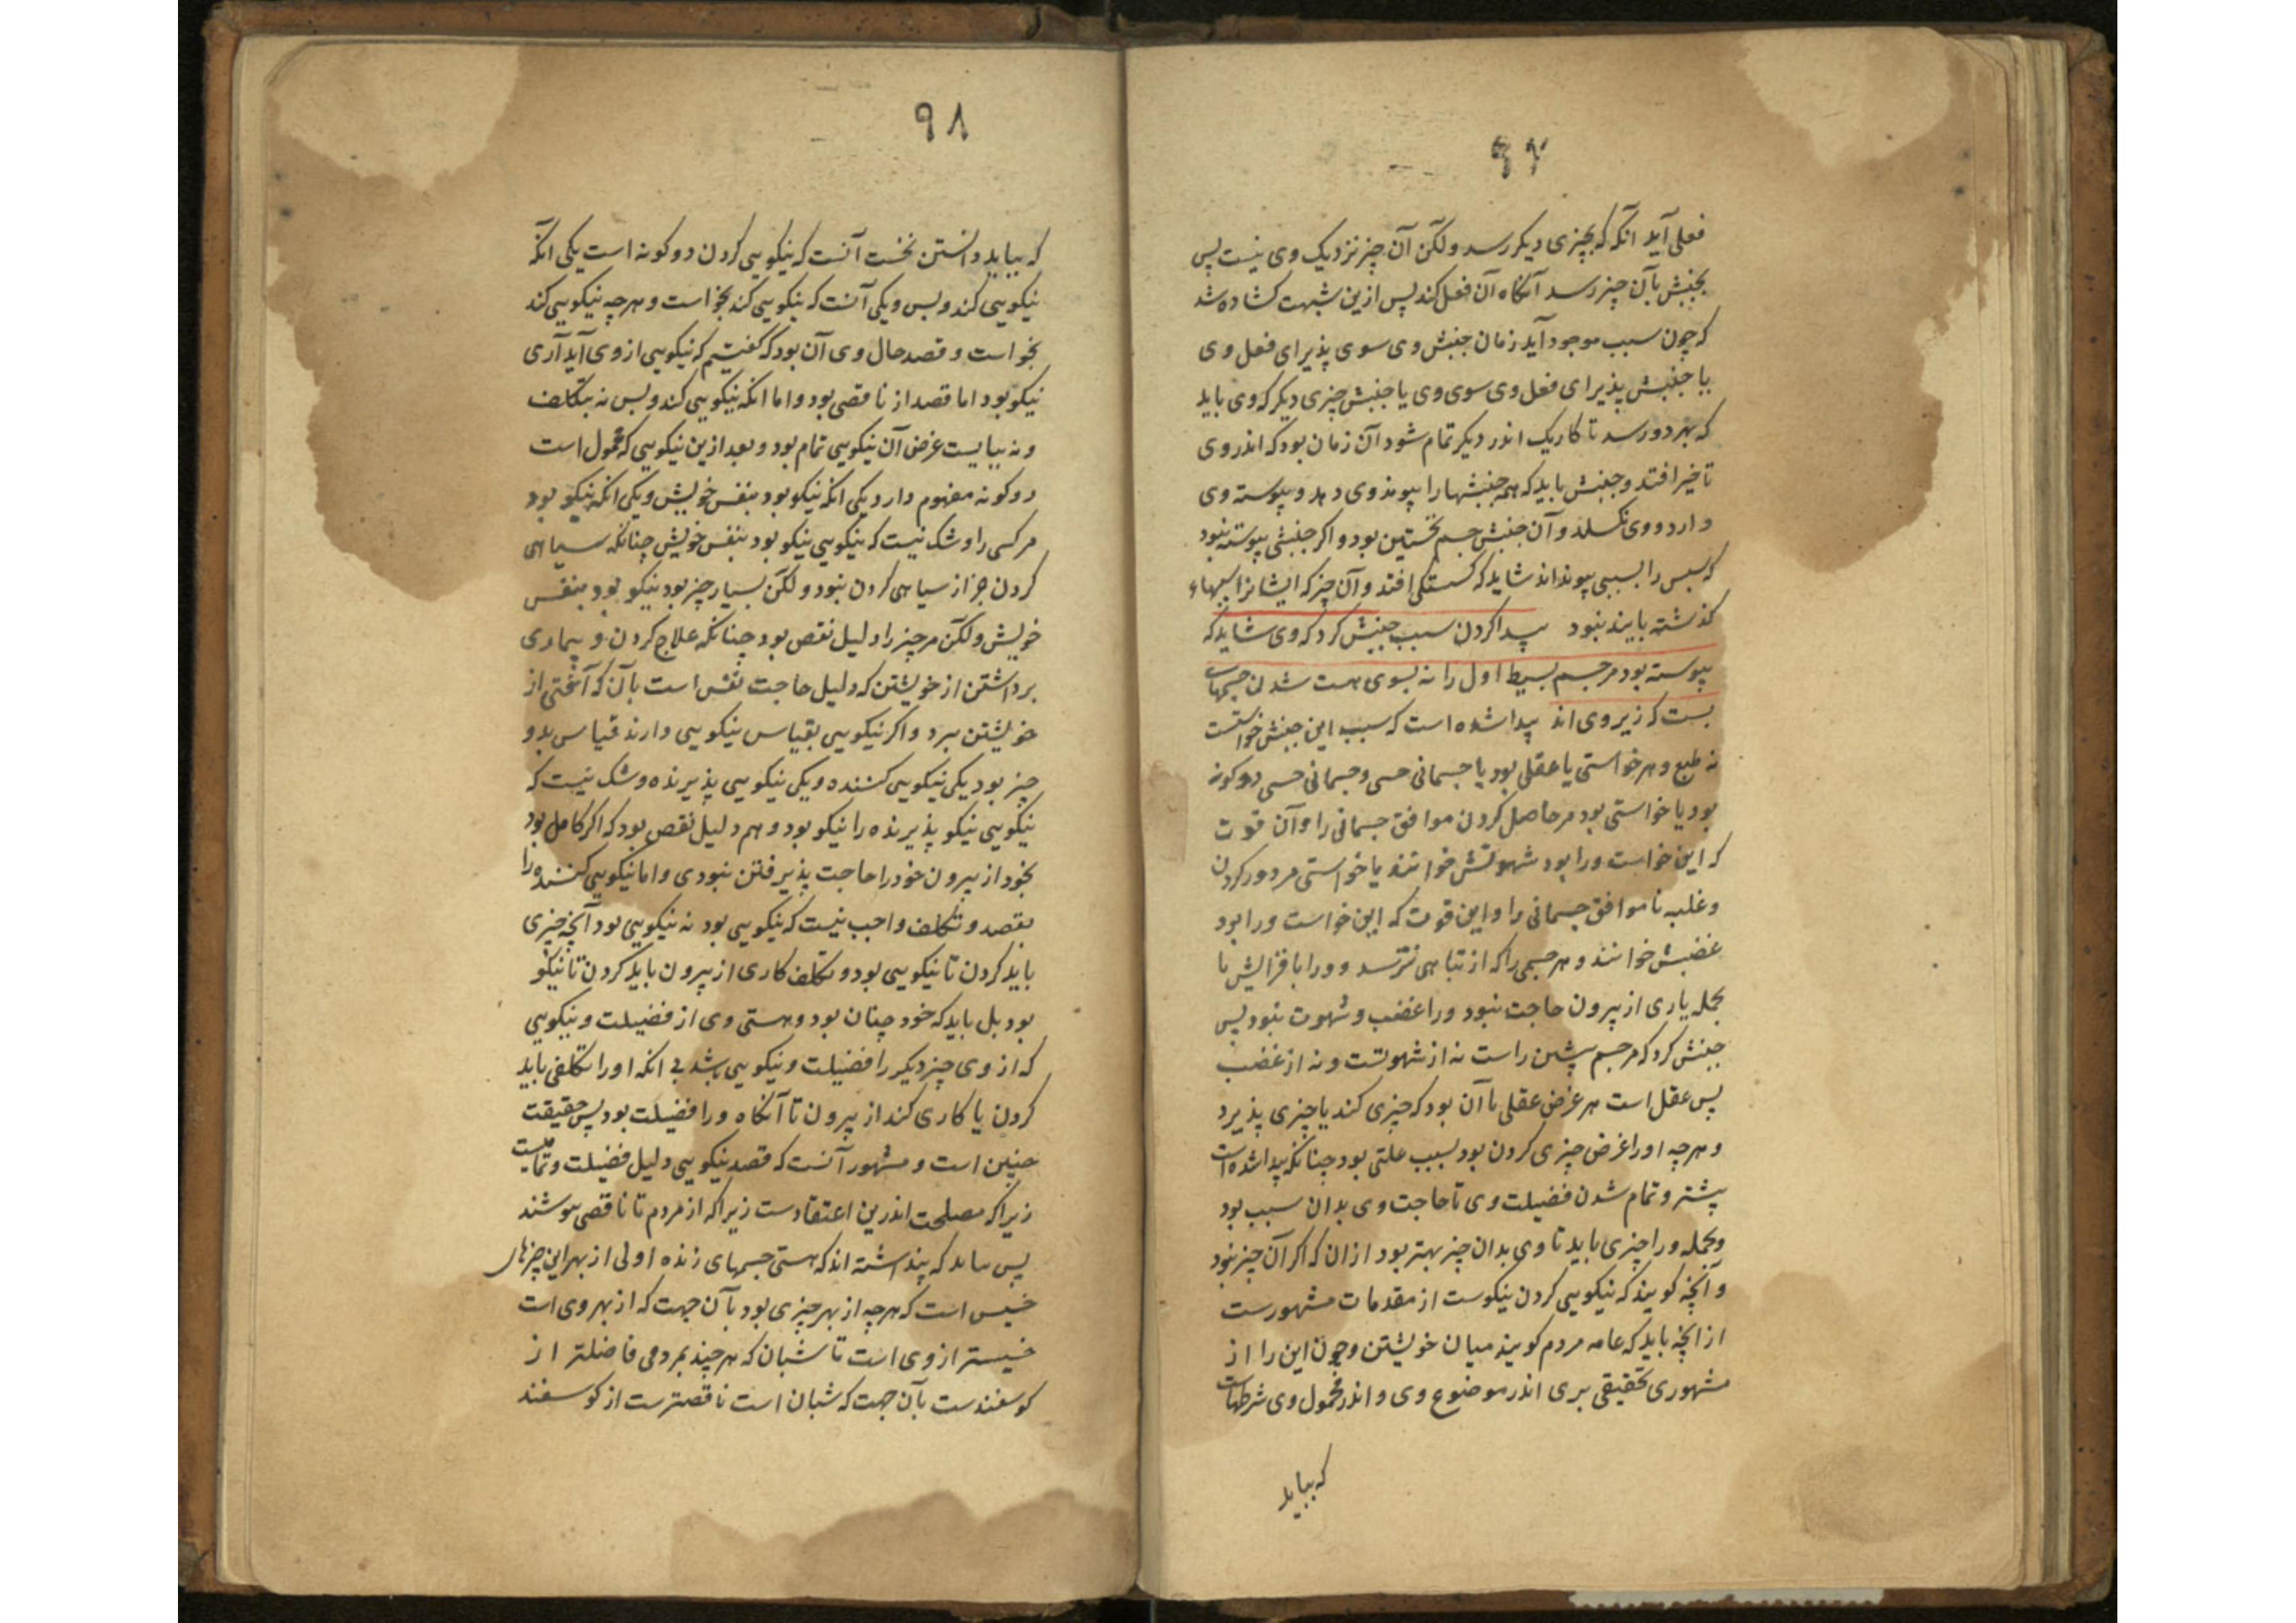 ۹۷
فعلی آید آنکه که بچیزی دیگر رسد ولکن آن چیز نزدیک وی نیست پس
بجنبش بآن چیز رسد آنگاه آن فعل کند پس ازین شبهت کشاده شد
که چون سبب موجود آید زمان جنبش وی سوی پذیرای فعل وی
یا جنبش پذیرای فعل وی سوی وی یا جنبش چیزی دیگر که وی باید
که بهر دو رسد تا کار یک اندر دیگر تمام شود آن زمان بود که اندر وی
تاخیر افتد و جنبش باید که همه جنبشها را پیوند وی دهد و پیوسته وی
دارد و وی نکسلد و آن جنبش جسم نخستین بود و اکر جنبشی پیوسته نبود
که سبس را بسببی پیونداند شاید که کستکی افتد و آن چیز که ایشانرا سببهاء
کذشته بایند نبود پیدا کردن سبب جنبش کرد که وی شاید که
پیوسته بود مر جسم بسیط اول را نه بسوی هست شدن جسمهای
بست که زیر وی اند پیدا شده است که سبب این جنبش خواستست
نه طبع و هر خواستی یا عقلی بود یا جسمانی حسی و جسمانی حسی دو کونه
بود یا خواستی بود مر حاصل کردن موافق جسمانی را و آن قوت
که این خواست ورا بود شهوتش خوانند یا خواستی مر دور کردن
و غلبه ناموافق جسمانی را و این قوت که این خواست ورا بود
غضبش خوانند و هر جسمی را که از تباهی نترسد و ورا بافزایش یا
بجمله یاری از بیرون حاجت نبود ورا غضب و شهوت نبود پس
جنبش کرد که مر جسم پشین راست نه از شهوتست و نه از غضب
پس عقل است هر غرض عقلی یا آن بود که چیزی کند یا چیزی پذیرد
و هرچه او را غرض چیزی کردن بود بسبب علتی بود چنانکه پیدا شده است
پیشتر و تمام شدن فضیلت وی تا حاجت وی بدان سبب بود
و بجمله ورا چیزی باید تا وی بدان چیز بهتر بود از ان که اکر آن چیز نبود
و آنچه کویند که نیکویی کردن نیکوست از مقدمات مشهورست
از انچه باید که عامه مردم کویند میان خویشتن و چون این را از
مشهوری بحقیقی بری اندر موضوع وی و اندر محمول وی شرطهاست
که بباید
۹۸
که بباید دانستن نخست آنست که نیکویی کردن دو کونه است یکی انکه
نیکویی کند و بس و یکی آنست که نیکویی کند بخواست و هرچه نیکویی کند
بخواست و قصد حال وی آن بود که گفتیم که نیکویی از وی آید آری
نیکو بود اما قصد از ناقصی بود و اما انکه نیکویی کند و بس نه بتکلف
و نه ببایست غرض آن نیکویی تمام بود و بعد ازین نیکویی که محمول است
دو کونه مفهوم دارد یکی انکه نیکو بود بنفس خویش و یکی انکه نیکو بود
مر کسی را و شک نیست که نیکویی نیکو بود بنفس خویش چنانکه سیاهی
کردن جز از سیاهی کردن نبود ولکن بسیار چیز بود نیکو بود بنفس
خویش ولکن مر چیز را دلیل نقص بود چنانکه علاج کردن و بیماری
برداشتن از خویشتن که دلیل حاجت نفس است بآن که آفتی از
خویشتن ببرد و اکر نیکویی بقیاس نیکویی دارند قیاس بدو
چیز بود یکی نیکویی کننده و یکی نیکویی پذیرنده و شک نیست که
نیکویی نیکو پذیرنده را نیکو بود و هم دلیل نقص بود که اکر کامل بود
بخود از بیرون خود را حاجت پذیرفتن نبودی و اما نیکویی کننده را
بقصد و تکلف واجب نیست که نیکویی بود نه نیکویی بود آنچه چیزی
باید کردن تا نیکویی بود و تکلف کاری از بیرون باید کردن تا نیکو
بود بل باید که خود چنان بود و هستی وی از فضیلت و نیکویی
که از وی چیز دیگر را فضیلت و نیکویی باشد بی انکه او را تکلفی باید
کردن یا کاری کند از بیرون تا آنگاه ورا فضیلت بود پس حقیقت
چنین است و مشهور آنست که قصد نیکویی دلیل فضیلت و تمامیست
زیرا که مصلحت اندرین اعتقادست زیرا که از مردم تا ناقصی
پس که پنداشته اند که هستی جسمهای زنده اولی از بهر این چیزهاء
خسیس است که هرچه از بهر چیزی بود بآن جهت که از بهر وی است
خسیستر از وی است تا شبان که هر چند بمردمی فاضلتر از
کوسفندست بآن جهت که شبان است ناقصترست از کوسفند